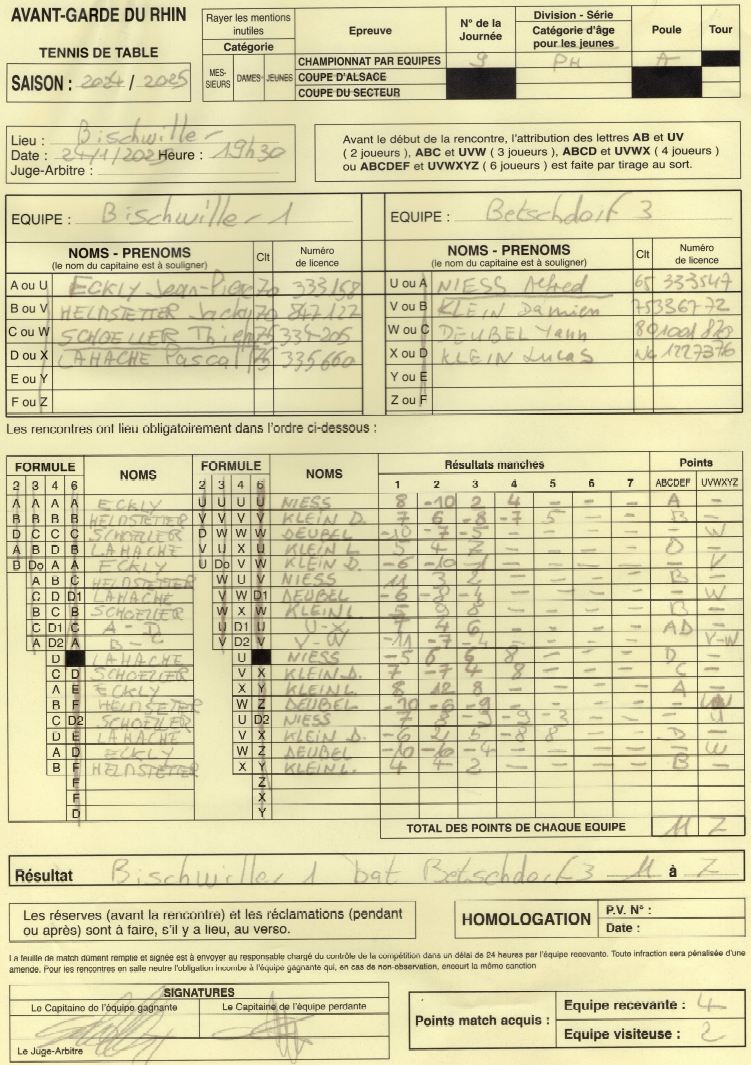 AVANT-GARDE DU RHIN
TENNIS DE TABLE
SAISON : 2024 / 2025
Rayer les mentions inutiles
Catégorie
MES-SIEURS DAMES JEUNES
Epreuve
N° de la Journée
Division - Série
Catégorie d'âge pour les jeunes
Poule
Tour
CHAMPIONNAT PAR EQUIPES 9 PH A
COUPE D'ALSACE
COUPE DU SECTEUR
Lieu : Bischwiller
Date : 24/1/2025 Heure : 19h30
Juge-Arbitre :
Avant le début de la rencontre, l'attribution des lettres AB et UV
( 2 joueurs ), ABC et UVW ( 3 joueurs ), ABCD et UVWX ( 4 joueurs )
ou ABCDEF et UVWXYZ ( 6 joueurs ) est faite par tirage au sort.
EQUIPE : Bischwiller 1
EQUIPE : Betschdorf 3
NOMS - PRENOMS Clt Numéro de licence
(le nom du capitaine est à souligner)
NOMS - PRENOMS Clt Numéro de licence
(le nom du capitaine est à souligner)
A ou U ECKLY Jean-Pierre 70 333158 U ou A NIESS Alfred 65 333547
B ou V HELDSTETTER Jacky 70 847122 V ou B KLEIN Damien 75 336772
C ou W SCHOELLER Thierry 75 334205 W ou C DEUBEL Yann 80 1001870
D ou X LAHACHE Pascal 75 335660 X ou D KLEIN Lucas NC 1227376
E ou Y Y ou E
F ou Z Z ou F
Les rencontres ont lieu obligatoirement dans l'ordre ci-dessous :
FORMULE NOMS FORMULE NOMS Résultats manches Points
2 3 4 6 2 3 4 6 1 2 3 4 5 6 7 ABCDEF UVWXYZ
A A A A ECKLY U U U U NIESS 8 -10 2 4 - - - A -
B B B B HELDSTETTER V V V V KLEIN D. 7 6 -8 -7 5 - - B -
D C C C SCHOELLER D W W W DEUBEL -10 -7 -5 - - - - - W
A B D B LAHACHE V U X U KLEIN L 5 4 7 - - - - D -
B Do A A ECKLY U Do V W KLEIN D. -6 -10 -1 - - - - - V
A B C HELDSTETTER W U V NIESS 11 3 2 - - - - B -
C D D1 LAHACHE V W D1 DEUBEL -6 -8 -4 - - - - - W
B C B SCHOELLER W X W KLEIN L 5 9 8 - - - - B -
C D1 C A - D U D1 U U - X 7 4 6 - - - - AD -
A D2 A B - C V D2 V V - W -11 -7 -4 - - - - - V-W
D LAHACHE U NIESS -5 6 6 8 - - - D -
C D SCHOELLER V X KLEIN D. 7 -7 4 8 - - - C -
A E ECKLY X Y KLEIN L. 8 12 8 - - - - A -
B F HELDSTETTER W Z DEUBEL -10 -6 -9 - - - - - W
C D2 SCHOELLER U D2 NIESS 7 8 -9 -9 -3 - - - U
D E LAHACHE V X KLEIN D. -6 2 5 -8 8 - - D -
A D ECKLY W Z DEUBEL -10 -10 -4 - - - - - W
B F HELDSTETTER X Y KLEIN L. 4 4 2 - - - - B -
F Z
F X
D Y
TOTAL DES POINTS DE CHAQUE EQUIPE 11 7
Résultat Bischwiller 1 bat Betschdorf 3 11 à 7
Les réserves (avant la rencontre) et les réclamations (pendant
ou après) sont à faire, s'il y a lieu, au verso.
HOMOLOGATION
P.V. N° :
Date :
La feuille de match dûment remplie et signée est à envoyer au responsable chargé du contrôle de la compétition dans un délai de 24 heures par l'équipe recevante. Toute infraction sera pénalisée d'une
amende. Pour les rencontres en salle neutre l'obligation incombe à l'équipe gagnante qui, en cas de non-observation, encourt la même sanction
SIGNATURES
Le Capitaine de l'équipe gagnante Le Capitaine de l'équipe perdante
Le Juge-Arbitre
Points match acquis :
Equipe recevante : 4
Equipe visiteuse : 2